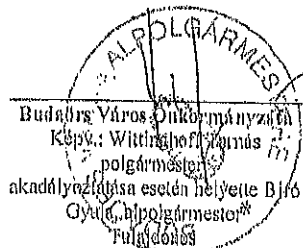 ALPOLGÁRMES
Budaörs Város Önkormányzata
Képv.: Wittinghoff Tamás
polgármester
akadályoztatása esetén helyette Bíró
Gyula, alpolgármester*
Tulajdonos